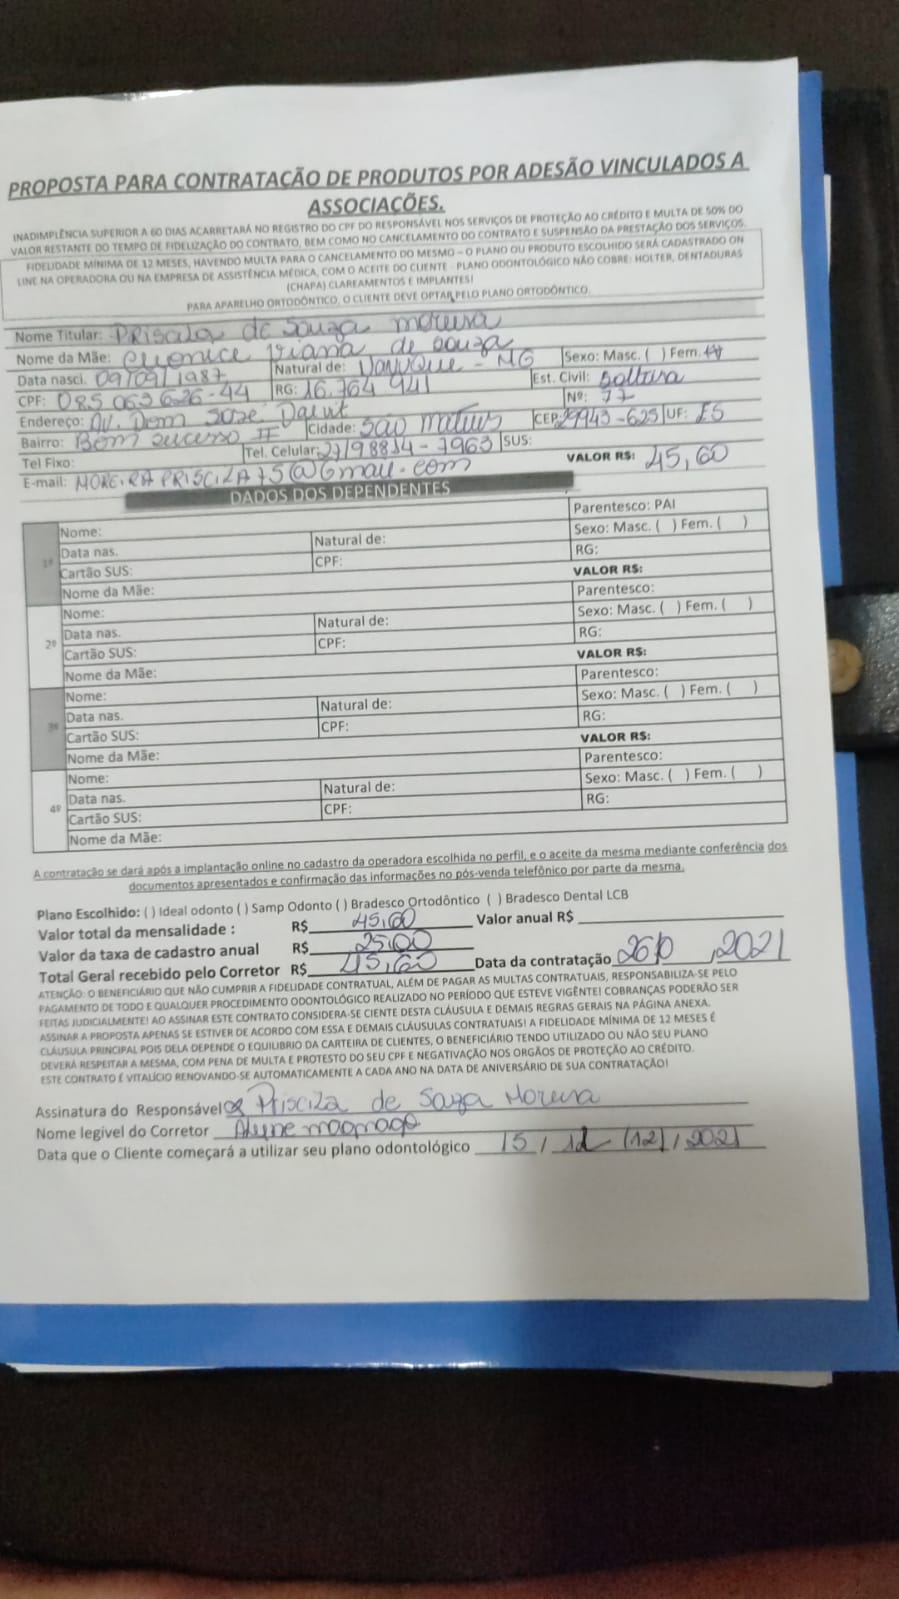 PROPOSTA PARA CONTRATAÇÃO DE PRODUTOS POR ADESÃO VINCULADOS A
ASSOCIACÕES.
INADIMPLÊNCIA SUPERIOR A 60 DIAS ACARRETARÁ NO REGISTRO DO CPF DO RESPONSÁVEL NOS SERVIÇOS DE PROTEÇÃO AO CRÉDITO E MULTA DE 50% DO
VALOR RESTANTE DO TEMPO DE FIDELIZAÇÃO DO CONTRATO, BEM COMO NO CANCELAMENTO DO CONTRATO E SUSPENSÃO DA PRESTAÇÃO DOS SERVIÇOS.
FIDELIDADE MÍNIMA DE 12 MESES, HAVENDO MULTA PARA O CANCELAMENTO DO MESMO – O PLANO OU PRODUTO ESCOLHIDO SERÁ CADASTRADO ON
LINE NA OPERADORA OU NA EMPRESA DE ASSISTÊNCIA MÉDICA, COM O ACEITE DO CLIENTE - PLANO ODONTOLÓGICO NÃO COBRE: HOLTER, DENTADURAS
(CHAPA) CLAREAMENTOS E IMPLANTES!
PARA APARELHO ORTODÔNTICO, O CLIENTE DEVE OPTAR PELO PLANO ORTODÔNTICO.
Nome Titular: Priscila de Souza moreira
Nome da Mãe: viana de souza Sexo: Masc. ( ) Fem. (X)
Data nasci. 09/09/1987 Natural de: Nanuque - MG Est. Civil: Solteira
CPF: 085 063 626-44 RG: 16.764 941 Nº: 77
Endereço: AV. Dom José Dalvit CEP: 29943-625 UF: ES
Bairro: Bom sucesso II Cidade: São Mateus
Tel Fixo: Tel. Celular: 27/98814-7963 SUS:
E-mail: MOREIRA PRISCILA75@Gmail.com VALOR R$: 45,60
DADOS DOS DEPENDENTES
1º Nome: Parentesco: PAI
Data nas. Natural de: Sexo: Masc. ( ) Fem. ( )
Cartão SUS: CPF: RG:
Nome da Mãe: VALOR R$:
2º Nome: Parentesco:
Data nas. Natural de: Sexo: Masc. ( ) Fem. ( )
Cartão SUS: CPF: RG:
Nome da Mãe: VALOR R$:
3º Nome: Parentesco:
Data nas. Natural de: Sexo: Masc. ( ) Fem. ( )
Cartão SUS: CPF: RG:
Nome da Mãe: VALOR R$:
4º Nome: Parentesco:
Data nas. Natural de: Sexo: Masc. ( ) Fem. ( )
Cartão SUS: CPF: RG:
Nome da Mãe:
A contratação se dará após a implantação online no cadastro da operadora escolhida no perfil, e o aceite da mesma mediante conferência dos
documentos apresentados e confirmação das informações no pós-venda telefônico por parte da mesma.
Plano Escolhido: ( ) Ideal odonto ( ) Samp Odonto ( ) Bradesco Ortodôntico ( ) Bradesco Dental LCB
Valor total da mensalidade : R$ 45,60 Valor anual R$
Valor da taxa de cadastro anual R$ 25,00
Total Geral recebido pelo Corretor R$ 45,60 Data da contratação 26/ , 2021
ATENÇÃO: O BENEFICIÁRIO QUE NÃO CUMPRIR A FIDELIDADE CONTRATUAL, ALÉM DE PAGAR AS MULTAS CONTRATUAIS, RESPONSABILIZA-SE PELO
PAGAMENTO DE TODO E QUALQUER PROCEDIMENTO ODONTOLÓGICO REALIZADO NO PERÍODO QUE ESTEVE VIGÊNTE! COBRANÇAS PODERÃO SER
FEITAS JUDICIALMENTE! AO ASSINAR ESTE CONTRATO CONSIDERA-SE CIENTE DESTA CLÁUSULA E DEMAIS REGRAS GERAIS NA PÁGINA ANEXA.
ASSINAR A PROPOSTA APENAS SE ESTIVER DE ACORDO COM ESSA E DEMAIS CLÁUSULAS CONTRATUAIS! A FIDELIDADE MÍNIMA DE 12 MESES É
CLÁUSULA PRINCIPAL POIS DELA DEPENDE O EQUILIBRIO DA CARTEIRA DE CLIENTES, O BENEFICIÁRIO TENDO UTILIZADO OU NÃO SEU PLANO
DEVERÁ RESPEITAR A MESMA, COM PENA DE MULTA E PROTESTO DO SEU CPF E NEGATIVAÇÃO NOS ORGÃOS DE PROTEÇÃO AO CRÉDITO.
ESTE CONTRATO É VITALÍCIO RENOVANDO-SE AUTOMATICAMENTE A CADA ANO NA DATA DE ANIVERSÁRIO DE SUA CONTRATAÇÃO!
Assinatura do Responsável Priscila de Souza Moreira
Nome legível do Corretor Alyne
Data que o Cliente começará a utilizar seu plano odontológico 15 / 12 (12) / 2021